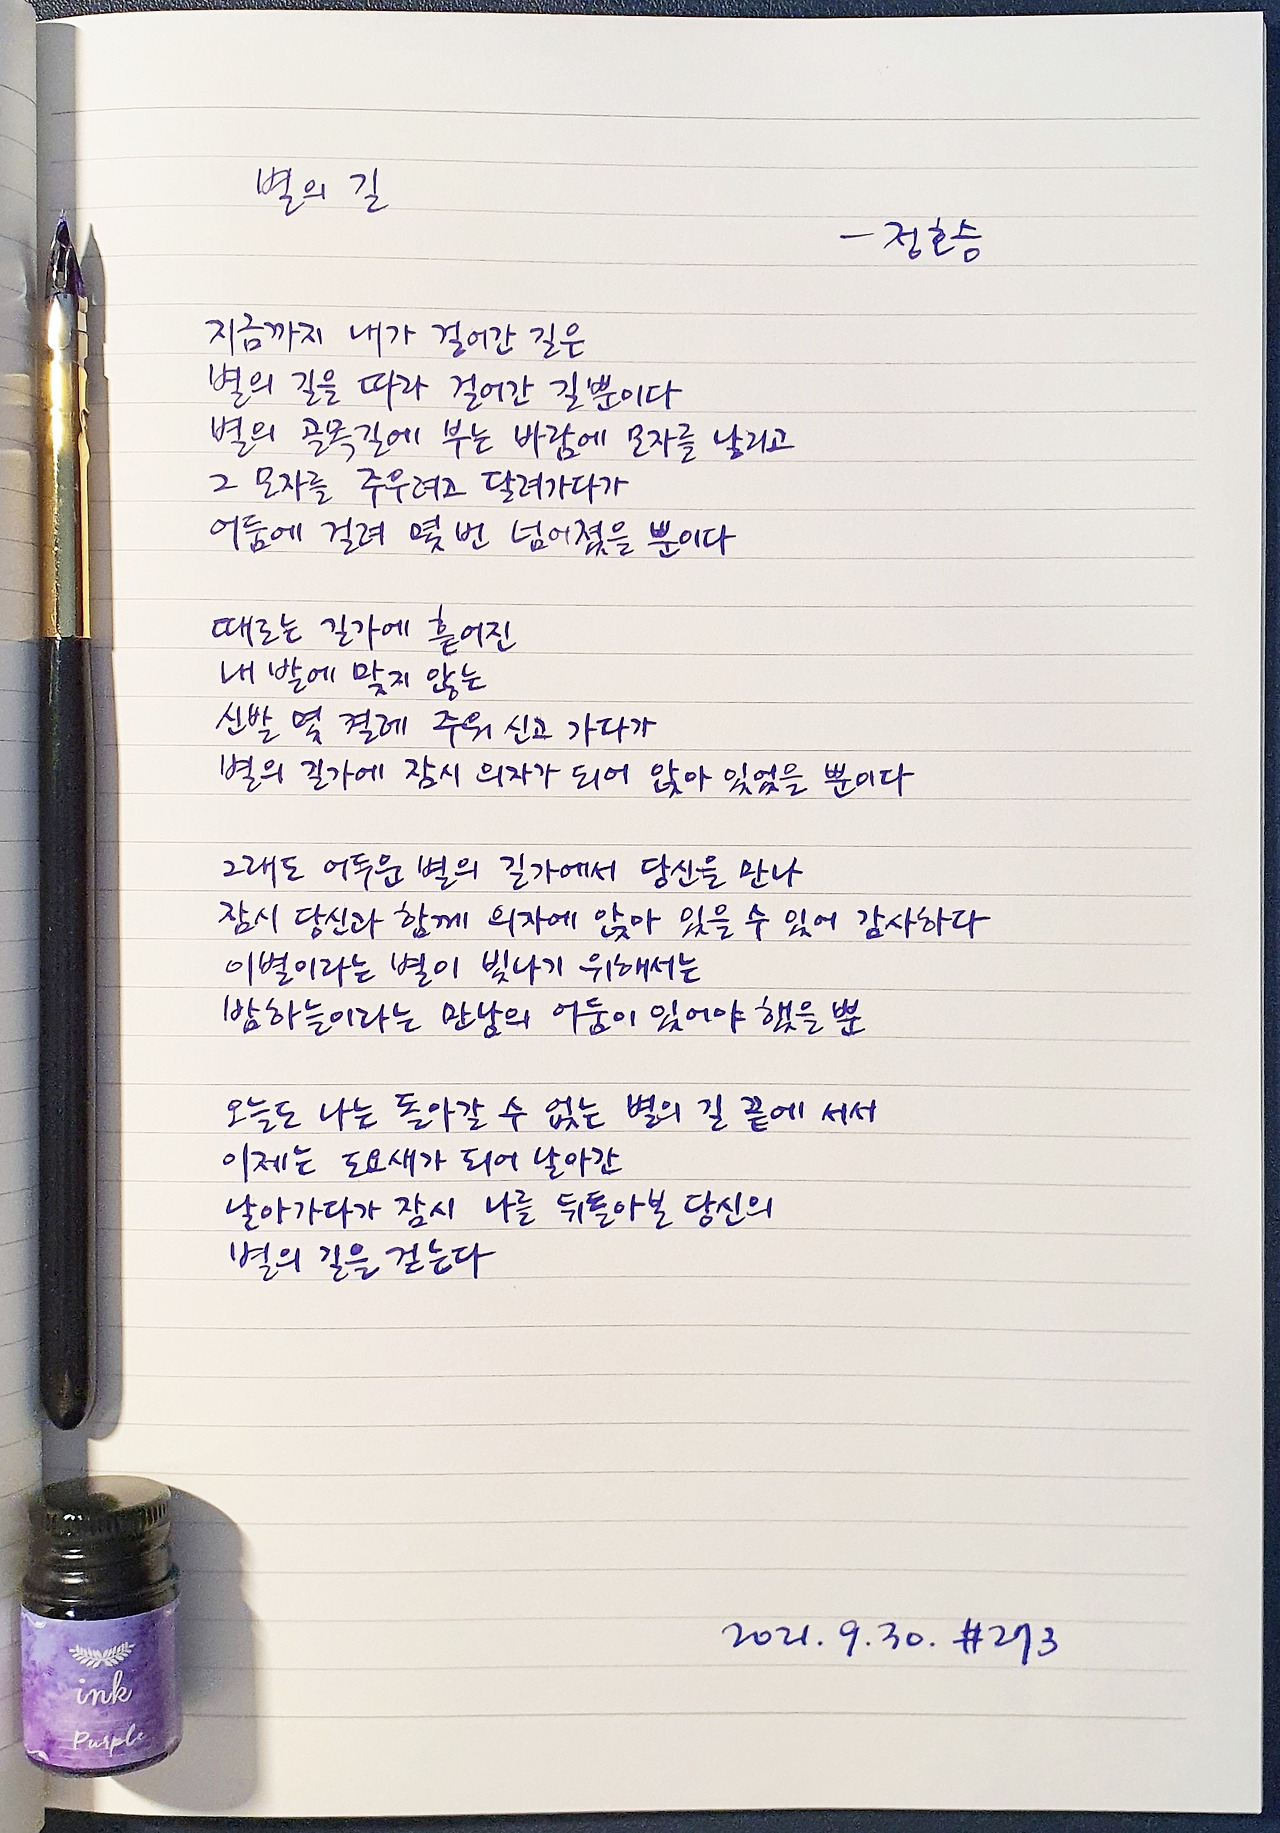 별의 길
- 정호승
지금까지 내가 걸어간 길은
별의 길을 따라 걸어간 길뿐이다
별의 골목길에 부는 바람에 모자를 날리고
그 모자를 주우려고 달려가다가
어둠에 걸려 몇 번 넘어졌을 뿐이다
때로는 길가에 흩어진
내 발에 맞지 않는
신발 몇 켤레 주워 신고 가다가
별의 길가에 잠시 의자가 되어 앉아 있었을 뿐이다
그래도 어두운 별의 길가에서 당신을 만나
잠시 당신과 함께 의자에 앉아 있을 수 있어 감사하다
이별이라는 별이 빛나기 위해서는
밤하늘이라는 만남의 어둠이 있어야 했을 뿐
오늘도 나는 돌아갈 수 없는 별의 길 끝에 서서
이제는 도요새가 되어 날아간
날아가다가 잠시 나를 뒤돌아본 당신의
별의 길을 걷는다
2021. 9. 30. #273
ink
Purple